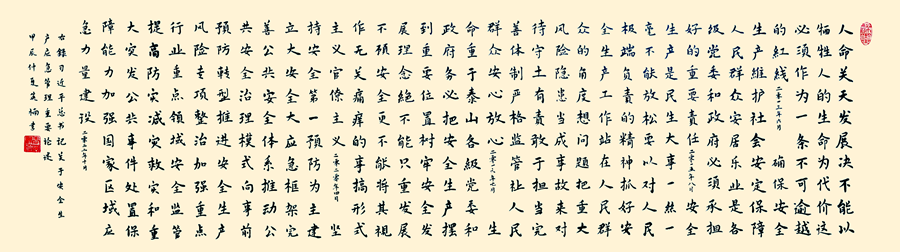 人命关天发展决不能以
牺牲人的生命为代价这
必须作为一条不可逾越
的红线 二〇一三年六月 确保安全
生产维护社会安定保障
人民群众安居乐业是各
级党委和政府必须承担
好的重要责任 二〇一五年八月 安全
生产是民生大事一丝一
毫不能放松要以对人民
极端负责的精神抓好安
全生产工作站在人民群
众的角度想问题把重大
风险隐患当成事故来对
待守土有责敢于担当完
善体制严格监管让人民
群众安心放心 二〇一六年七月 生
命重于泰山各级党委和
政府务必把安全生产摆
到重要位置树牢安全发
展理念絕不能只重发展
不顾安全更不能将其视
作无关痛痒的事搞形式
主义官僚主义 二〇二〇年四月 坚
持安全第一预防为主建
立大安全大应急框架完
善公共安全体系推动公
共安全治理模式向事前
预防转型推进安全生产
风险专项整治加强重点
行业重点领域安全监管
提高防灾减灾救灾和重
大突发公共事件处置保
障能力加强国家区域应
急力量建设 二〇二二年十月
右録习近平总书记关于安全生
产应急管理重要论述
甲辰仲夏